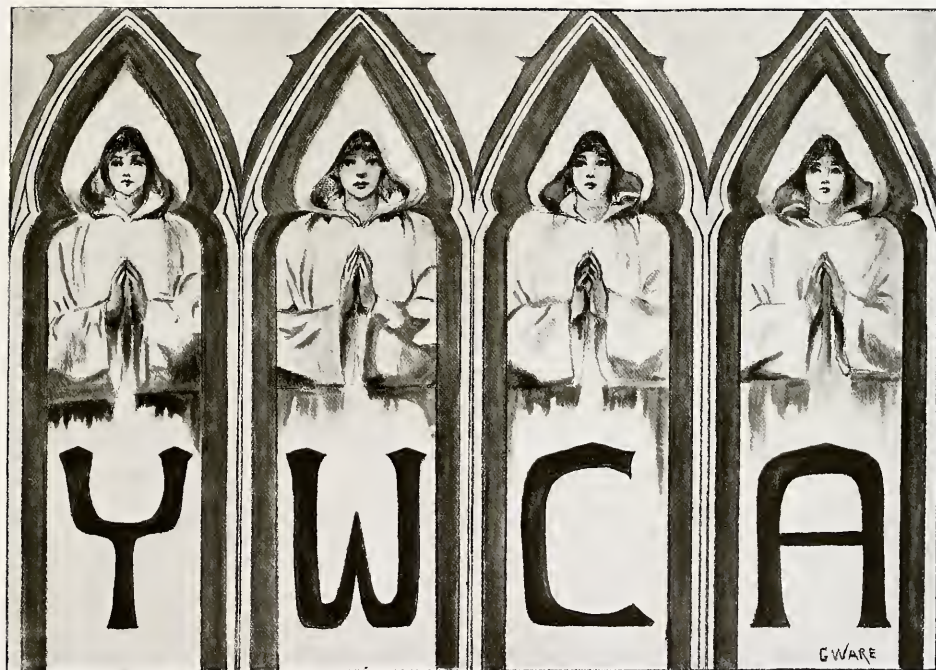 YWCA
G WARE